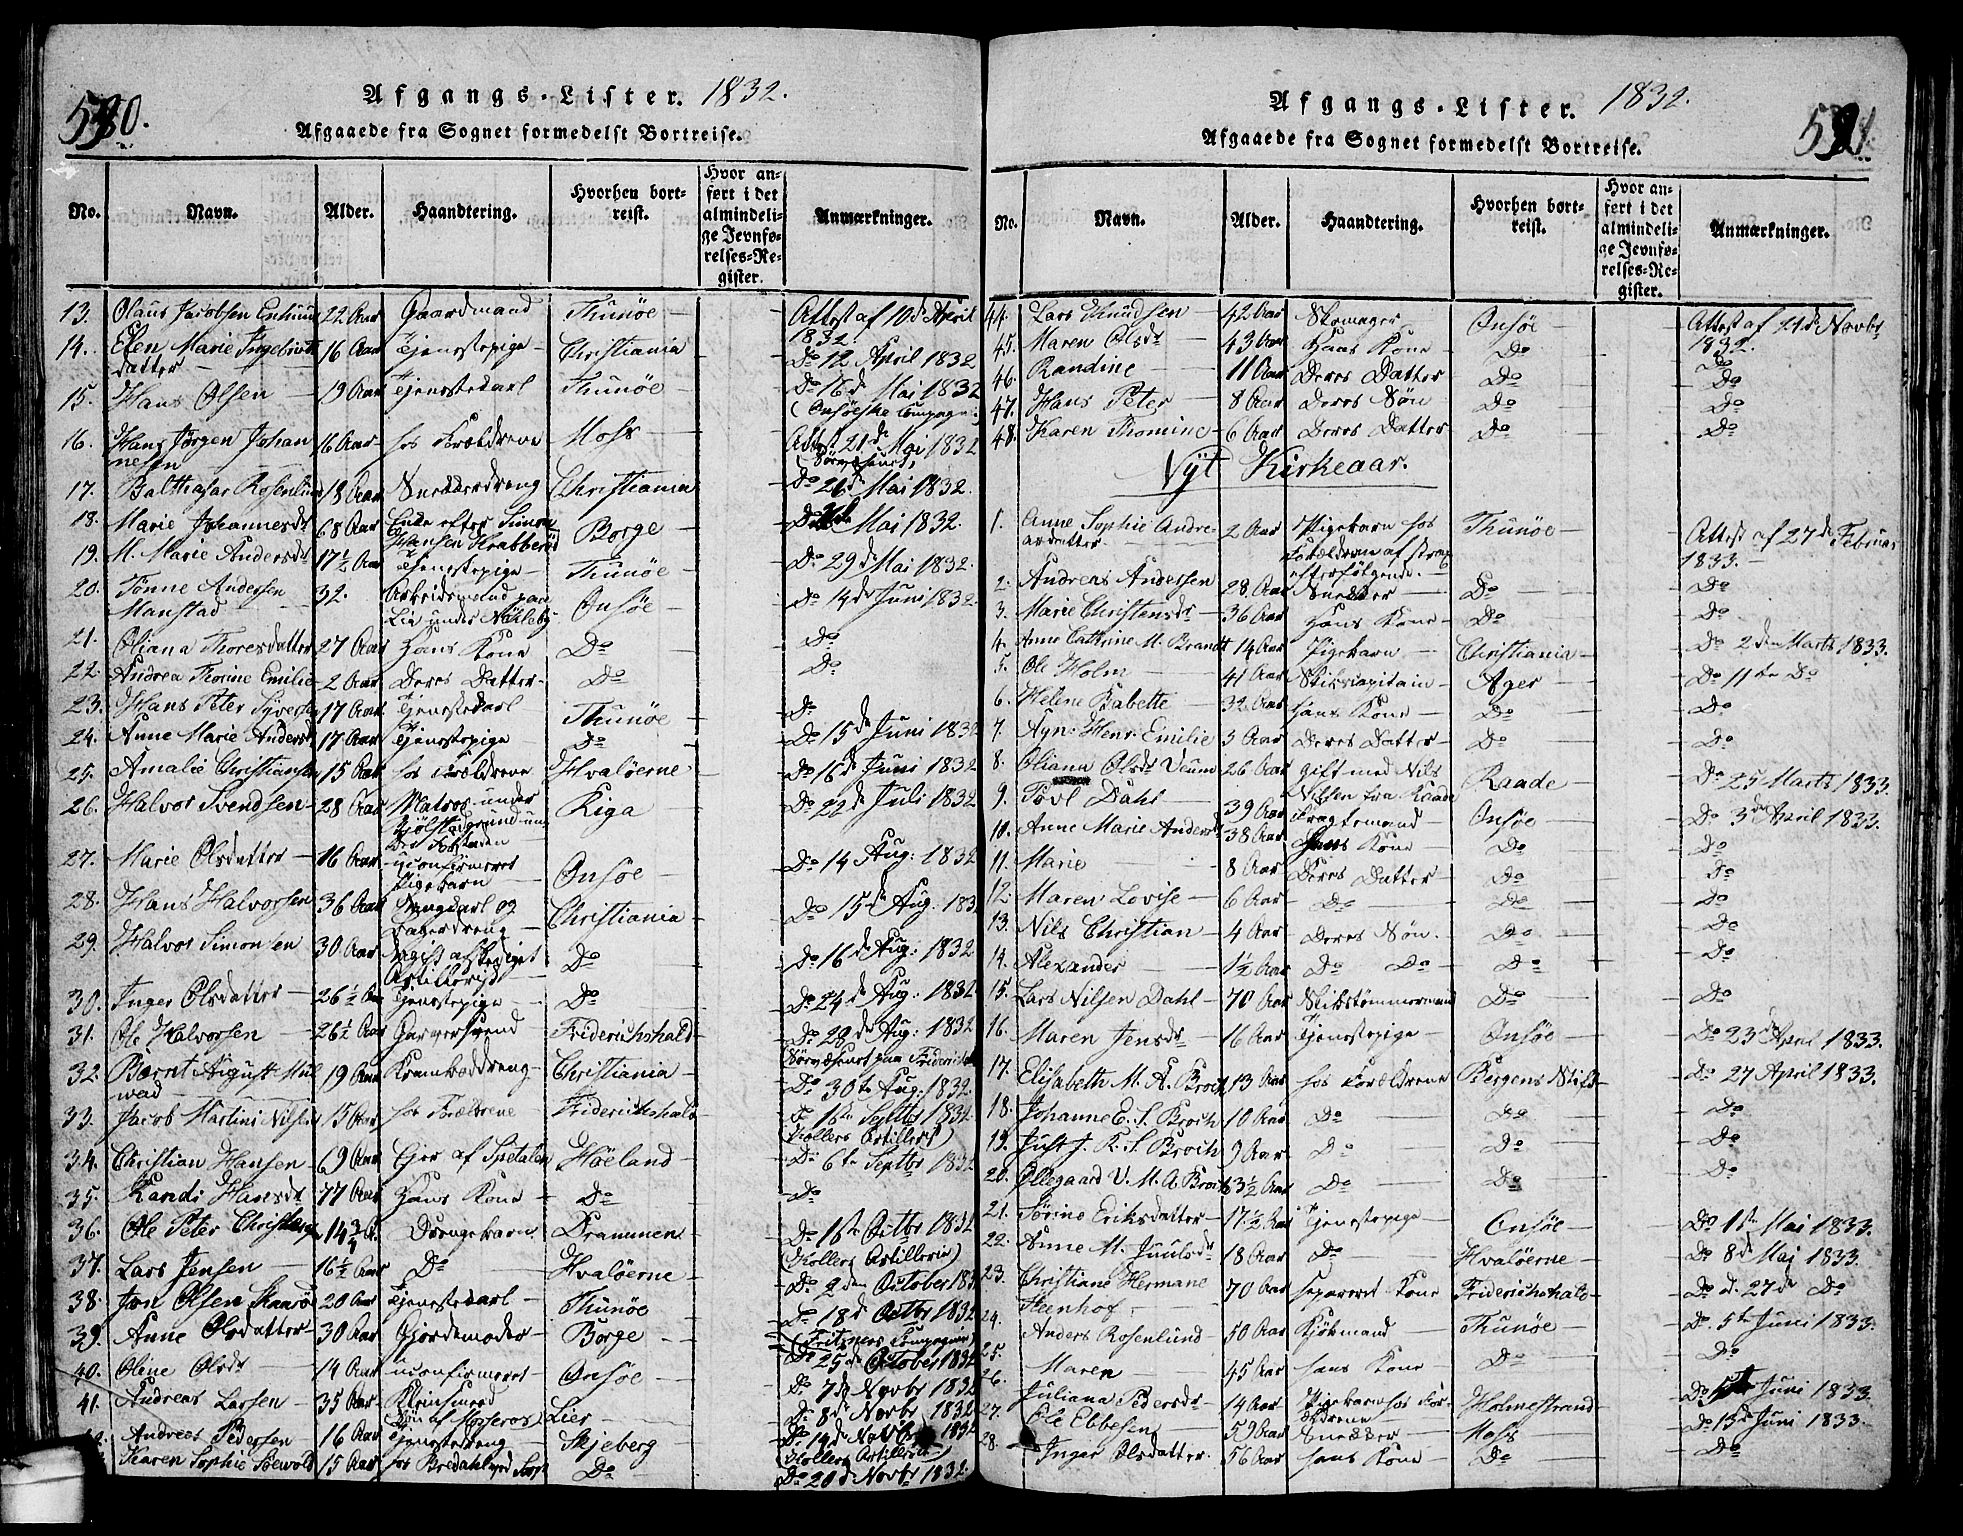 580.
Afgangs-Lister. 1832.
Afgaaede fra Sognet formedelst Bortreise.
No. Navn. Alder. Haandtering. Hvorhen bortreist. Hvor anført i det almindelige Jevnførelses-Register. Anmærkninger.
13. Olaus Jacobsen 22 Aar Gaardmand Thunöe Attest af 10de April 1832
14. Elen Marie Ingebrigtsdatter 16 Aar Tjenestepige Christiania Do 12 April 1832
15. Hans Olsen 19 Aar Tjenestekarl Thunöe Do 16de Mai 1832
(Onsöeske Compagni)
16. Hans Jörgen Johannesen 16 Aar hos Forældrene Moss Attest 21de Mai 1832
17. Balthasar Rosenlund 18 Aar Snedkerdreng Christiania Do 26de Mai 1832.
18. Marie Johannesdr 68 Aar Enke efter Simon Hansen Krabberöd Borge Do Mai 1832.
19. M. Marie Andersdr 17½ Aar Tjenestepige Thunöe Do 29de Mai 1832.
20. Tönne Andersen Manstad 32. Arbeidsmand paa Lie under Nöhleby Onsöe Do 14de Juni 1832
21. Oliana Thoresdatter 27 Aar Hans Kone Do Do
22. Andrea Thorine Emilie 2 Aar Deres Datter Do Do
23. Hans Peter Syversen 17 Aar Tjenestekarl Thunöe Do
24. Anne Marie Andersdr 17 Aar Tjenestepige Do Do 15de Juni 1832
25. Amalie Christiansen 15 Aar hos Forældrene Hvalöerne Do 16de Juni 1832
26. Halvor Svendsen 28 Aar Matros under Kjölstadgrund Riga Do 22de Juli 1832
27. Marie Olsdatter 16 Aar uconfirmeret Pigebarn Onsöe Do 14 Aug: 1832
28. Hans Halvorsen 36 Aar og Bagerdreng Christiania Do 15de Aug: 1832
29. Halvor Simonsen 30 Aar afskediget Artillerist Do Do 16de Aug: 1832
30. Inger Olsdatter 26½ Aar Tjenestepige Do Do 24de Aug: 1832
31. Ole Halvorsen 26½ Aar Garversvend Friderichshald Do 28de Aug: 1832
32. Bernt August Mulwad 19 Aar Kramboddreng Christiania Do 30te Aug: 1832.
33. Jacob Martini Nilsen 15 Aar hos Forældrene Friderichshald Do 1ste Septbr 1832
(Kollers Artilleri)
34. Christian Hansen 69 Aar Hoeland Do 6te Septbr 1832
35. Randi Hansdr 77 Aar Hans Kone Do Do
36. Ole Peter Christensen 14¾ A. Drengebarn Drammen Do 1ste Octbr 1832
(Kollers Artillerie)
37. Lars Jensen 16½ Aar Do Hvalöerne Do 2den October 1832
38. Jon Olsen 20 Aar Tjenestekarl Thunöe Do 18de Octbr 1832
39. Anne Olsdatter 30 Aar Gjordemoder Borge (Fritzners Compagnie)
40. Oline Olsdr 14 Aar uconfirmeret Onsöe Do 25de October 1832
41. Andreas Larsen 35 Aar Kleinsmed Lier Do 7de Novbr 1832
Do 8de Novbr 1832
Andreas Pedersen 16 Aar Tjenestedreng Skjeberg Do 14de Novbr 1832
(Kollers Artillerie)
Karen Sophie Soewold 15 Aar hos Do Do 20de Novbr 1832.
Afgangs-Lister. 1832.
Afgaaede fra Sognet formedelst Bortreise.
No. Navn. Alder. Haandtering. Hvorhen bortreist. Hvor anført i det almindelige Jevnførelses-Register. Anmærkninger.
44. Lars Knudsen 42 Aar Skomager Onsöe Attest af 21de Novbr 1832.
45. Maren Olsdr 43 Aar Hans Kone Do Do
46. Randine 11 Aar Deres Datter Do Do
47. Hans Peter 8 Aar Deres Sön Do Do
48. Karen Thomine 6 Aar Deres Datter Do Do
Nyt Kirkeaar.
1. Anne Sophie Andreasdatter 2 Aar Pigebarn hos Forældrene af strax efterfölgende Thunöe Attest af 27de Februar 1833.
2. Andreas Andersen 28 Aar Snedker Do Do
3. Marie Christensdr 36 Aar Hans Kone Do Do
4. Anne Cathrine M. Brandt 14 Aar Pigebarn Christiania Do 2den Marts 1833.
5. Ole Holm 41 Aar Skibscapitain Ager Do 11te Do
6. Helene Babette 32 Aar hans Kone Do Do
7. Agn: Henr: Emilie 3 Aar Deres Datter Do Do
8. Oliana Olsdr Veum 26 Aar gift med Nils Nilsen fra Raade Raade Do 25 Marts 1833.
9. Tövl Dahl 39 Aar Fragtemand Onsöe Do 3de April 1833.
10. Anne Marie Andersdr 38 Aar Hans Kone Do Do
11. Marie 8 Aar Deres Datter Do Do
12. Maren Lovise 6 Aar Do Do Do
13. Nils Christian 4 Aar Deres Sön. Do Do
14. Alexander 1½ Aar Do Do Do Do
15. Lars Nilsen Dahl 70 Aar Skibstömmermand Do Do
16. Maren Jensdr 16 Aar Tjenestepige Onsöe Do 23de April 1833.
17. Elisabeth M. A. Broch 13 Aar hos Forældrene Bergens Stift Do 27 April 1833.
18. Johanne E. S. Broch 10 Aar Do Do Do
19. Just J. K. S. Broch 9 Aar Do Do Do
20. Ollegaard V. M. A. Broch 3½ Aar Do Do Do
21. Sörine Eriksdatter 17½ Aar Tjenestepige Onsöe Do 1ste Mai 1833.
22. Anne M. Juulsdr 18 Aar Do Hvalöerne Do 8de Maj 1833.
23. Christiane Hermane Heenhof 70 Aar separeret Kone Friderichshald Do d. 27de Do
24. Anders Rosenlund 50 Aar Kjöbmand Thunöe Do 5te Juni 1833.
25. Maren 45 Aar hans Kone Do Do
26. Juliana Pedersdr 14 Aar Pigebarn hos Forældrene Holmestrand Do Juni 1833.
27. Ole Ebbesen 59 Aar Snedker Moss Do 13de Juni 1833.
28. Inger Olsdatter 56 Aar hans Kone Do Do